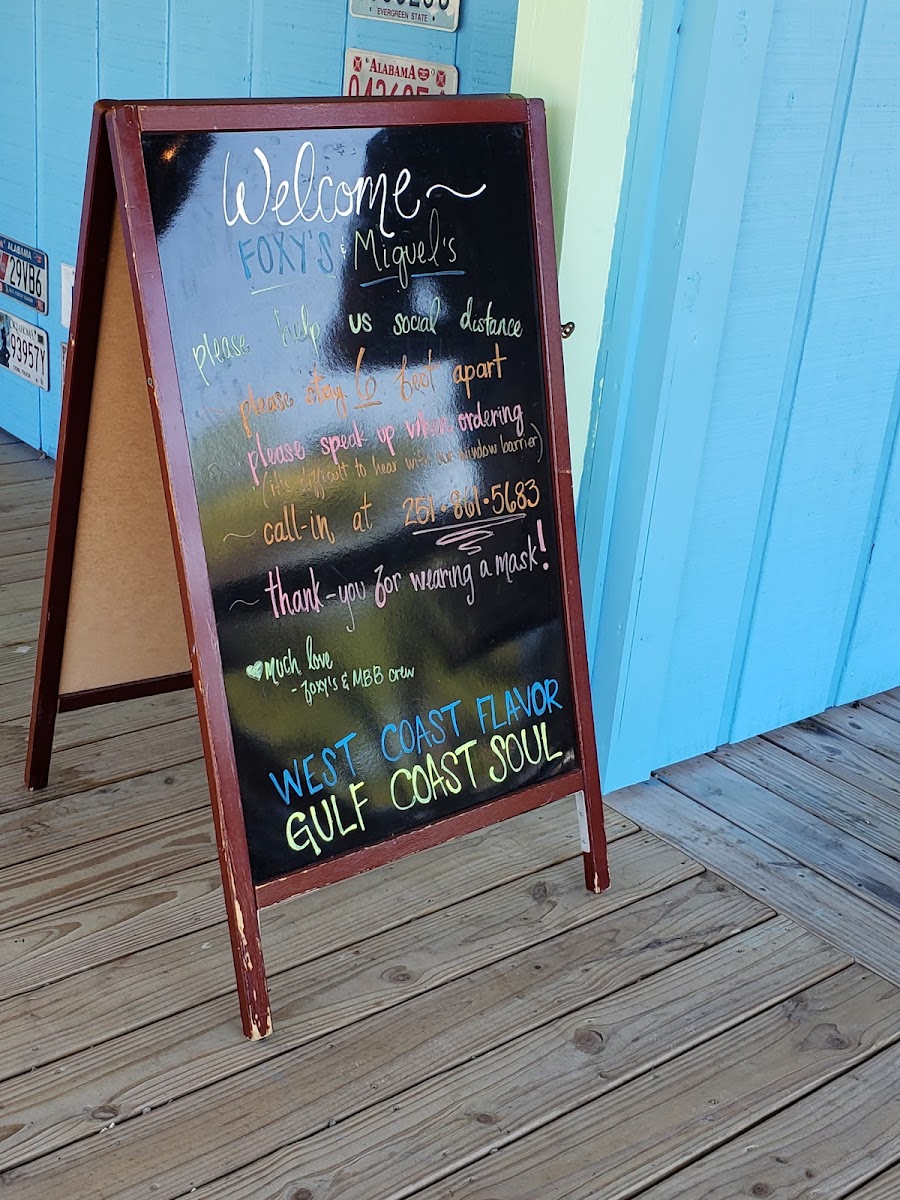 EVERGREEN STATE
ALABAMA
ALABAMA
29VB6
93957Y
Welcome~
FOXY'S & Miguel's
please help us social distance
~ please stay 6 feet apart
please speak up when ordering
(it's difficult to hear with our window barrier)
~ call-in at 251·861·5683
~ thank-you for wearing a mask!
Much love
- Foxy's & MBB crew
WEST COAST FLAVOR
GULF COAST SOUL